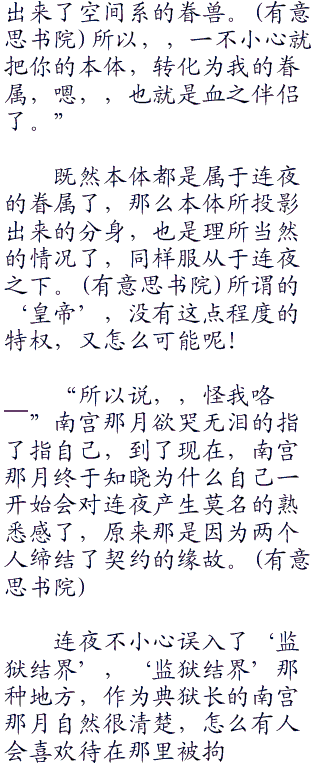 出来了空间系的眷兽。(有意
思书院)所以，，一不小心就
把你的本体，转化为我的眷
属，嗯，，也就是血之伴侣
了。”
既然本体都是属于连夜
的眷属了，那么本体所投影
出来的分身，也是理所当然
的情况了，同样服从于连夜
之下。(有意思书院)所谓的
‘皇帝’，没有这点程度的
特权，又怎么可能呢！
“所以说，，怪我咯
—”南宫那月欲哭无泪的指
了指自己，到了现在，南宫
那月终于知晓为什么自己一
开始会对连夜产生莫名的熟
悉感了，原来那是因为两个
人缔结了契约的缘故。(有意
思书院)
连夜不小心误入了‘监
狱结界’，‘监狱结界’那
种地方，作为典狱长的南宫
那月自然很清楚，怎么有人
会喜欢待在那里被拘